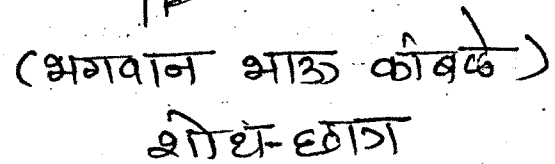 (भगवान भाऊ कांबळे)
शोध-छात्र